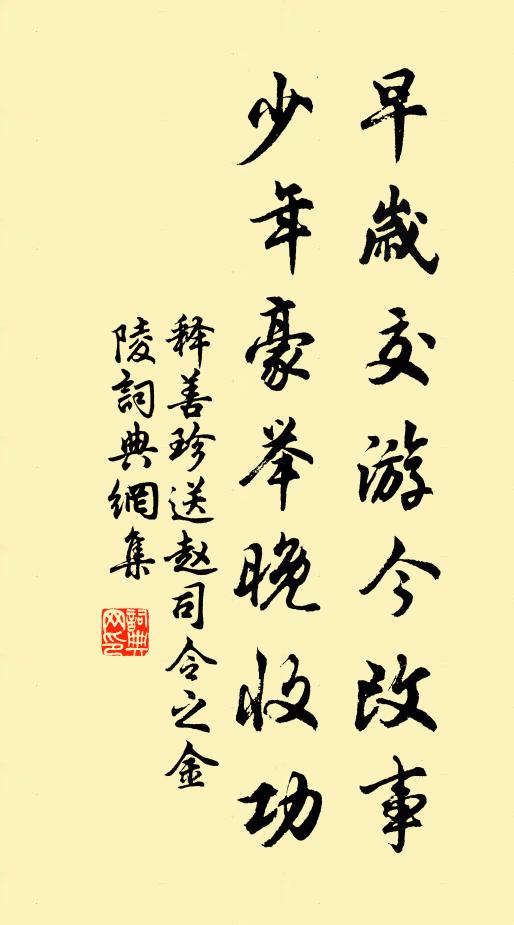 早岁交游今改事
少年豪举晚收功
释善珍送赵司令之金
陵詞典網集
詞典
网印